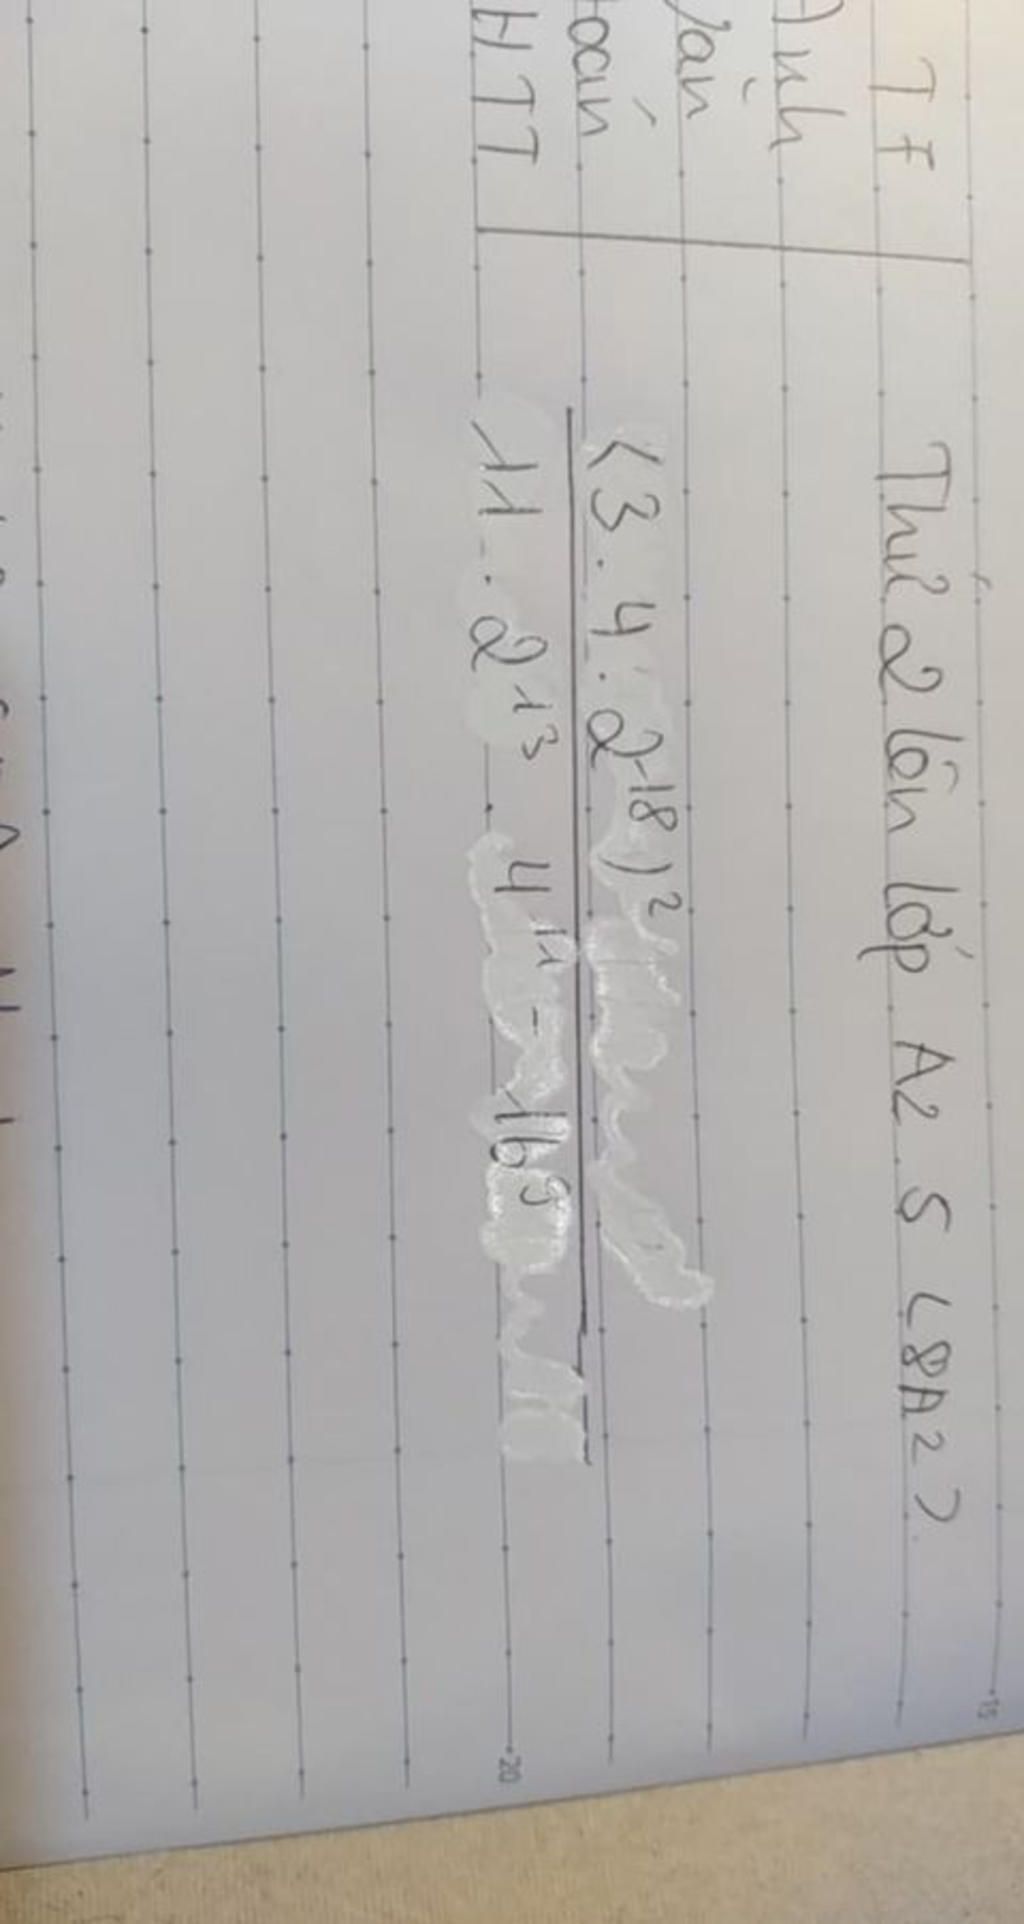 T7
Anh
Văn
Toán
HTT
Thứ 2 lên lớp A2 5 (8A2)
(3.4.2^18)^2
11.2^13.4^11-16^9
15
20